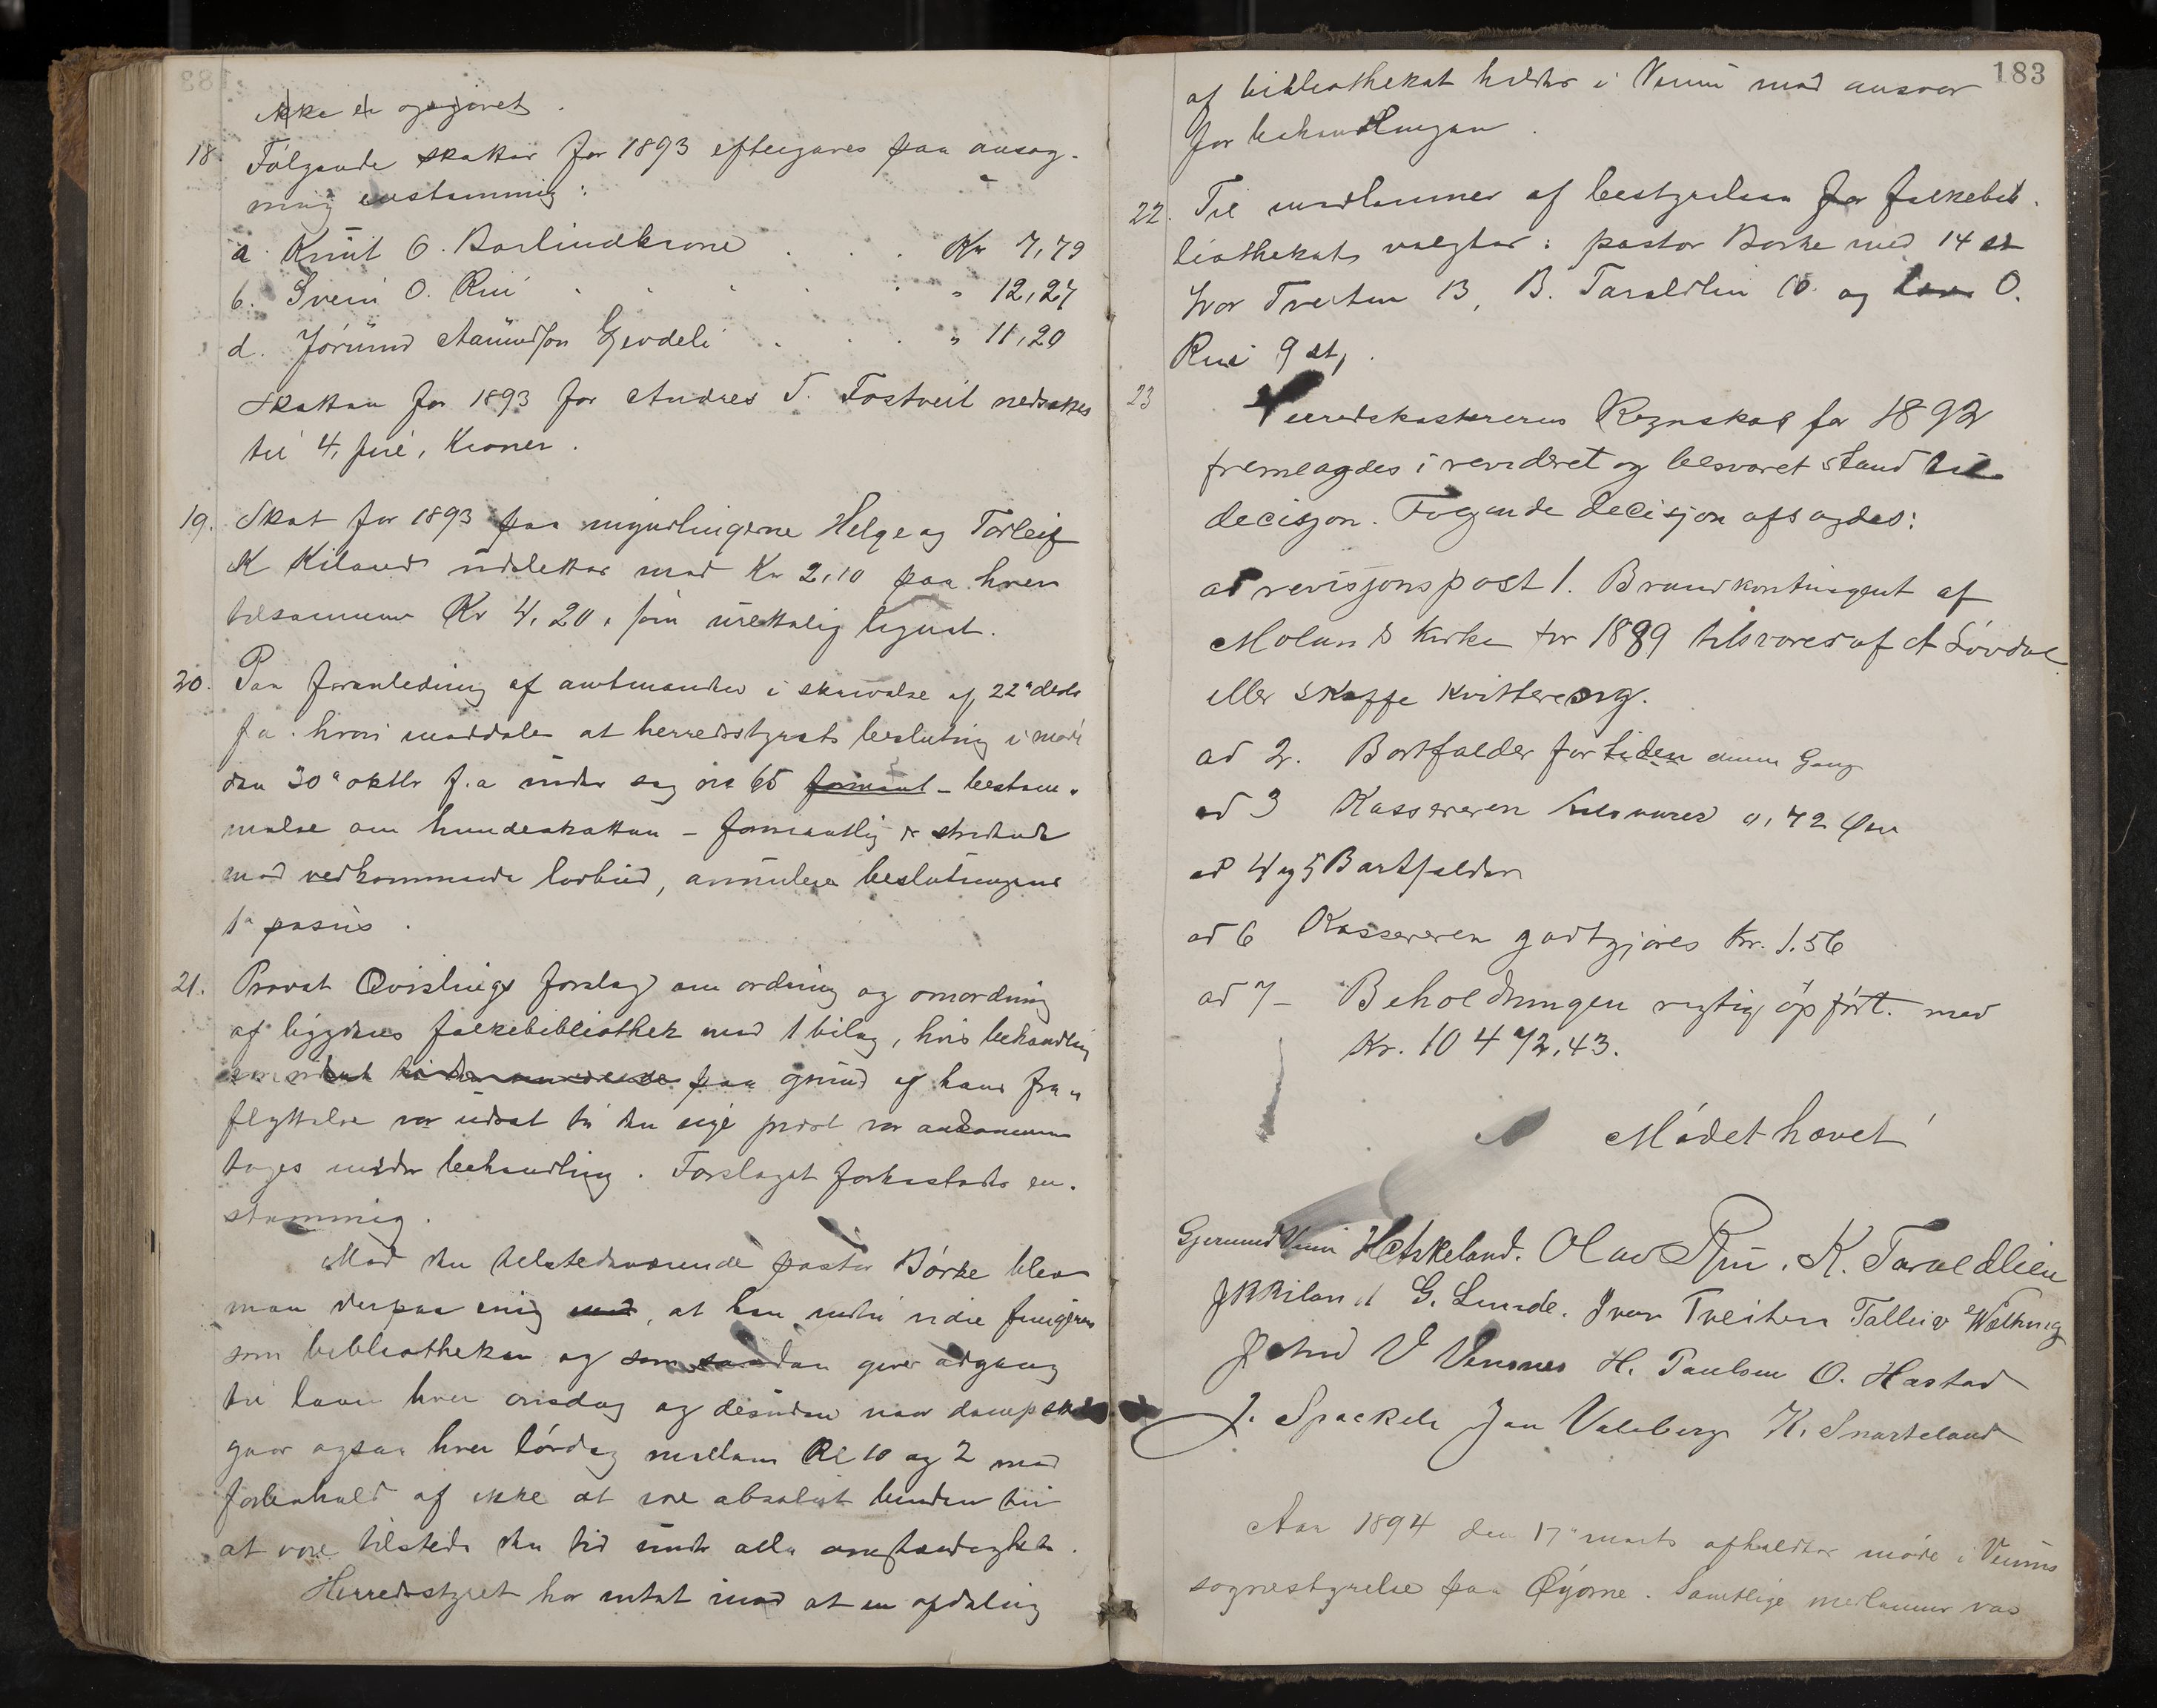 ikke er opgjøret.
18. Følgende skatter for 1893 eftergives paa ansøg-
ning enstemmig:
a. Knut O. Barlindkrone . . . Kr 7,79
b. Svein O. Rui . . . . . " 12,27
d. Jørund Aanundson Gjevdeli . . . " 11,20
Skatten for 1893 for Andres T. Fostveit nedsættes
til 4, fire, Kroner.
19. Skat for 1893 paa myndlingerne Helge og Torleif
K Kiland udslettes med Kr 2,10 paa hver
tilsammen Kr 4,20, som urettelig lignet.
20. Paa foranledning af amtmanden i skrivelse af 22de decbr
f.a. hvori meddeles at herredsstyrets beslutning i møde
den 30te oktbr f.a under sag no 65 forment - bestem-
melse om hundeskatten - formentlig er stridende
mod vedkommende lovbud, annulleres beslutningens
1ste passus.
21. Provst Qvislings forslag om ordning og omordning
af bygdens folkebibliothek med 1 bilag, hvis behandling
paa grund af hans fra-
flyttelse var udsat til den nye prest var ankommen
toges under behandling. Forslaget forkastedes en-
stemmig.
Med den tilstedeværende pastor Børke blev
man derpaa enig med, at han indtil videre fungerer
som bibliothekar og som saadan giver adgang
til laan hver onsdag og desuden naar dampskib
gaar ogsaa hver lørdag mellem Kl 10 og 2 med
forbehold af ikke at være absolut bunden til
at være tilstede den tid under alle omstændigheder.
Herredsstyret har intet imod at en afdeling
183
af bibliotheket holdes i Veum mod ansvar
for behandlingen.
22. Til medlemmer af bestyrelsen for folkebib-
liotheket valgtes: pastor Børke med 14 st
Ivar Treiten 13, B. Taraldlien 10 og O.
Rui 9 st.
23 Herredskasserерens Regnskab for 1892
fremlagdes i revideret og besvaret stand til
decisjon. Følgende decisjon afsagdes:
ad revisjonspost 1. Brandkontingent af
Molands Kirke for 1889 tilsvares af A Løvdal
eller skaffe kvittering.
ad 2. Bortfalder for tiden denne Gang
ad 3 Kassereren tilsvarer 0,72 Øre
ad 4 og 5 Bortfalder
ad 6 Kassereren godtgjøres Kr. 1.56
ad 7 - Beholdningen rigtig opført. med
Kr. 10472,43.
Mødet hævet
Gjermund Veum H Askeland. Olav Rui. K. Taraldlien
J K Kiland G. Lunde. Ivar Treiten Talleiv
V Vennes H. Paulsen O. Hastad
J. Spaekeli Jan Valeberg K. Snarteland
Aar 1894 den 17de marts afholdtes møde i Veums
sognestyrelse paa Øyerne. Samtlige medlemmer var